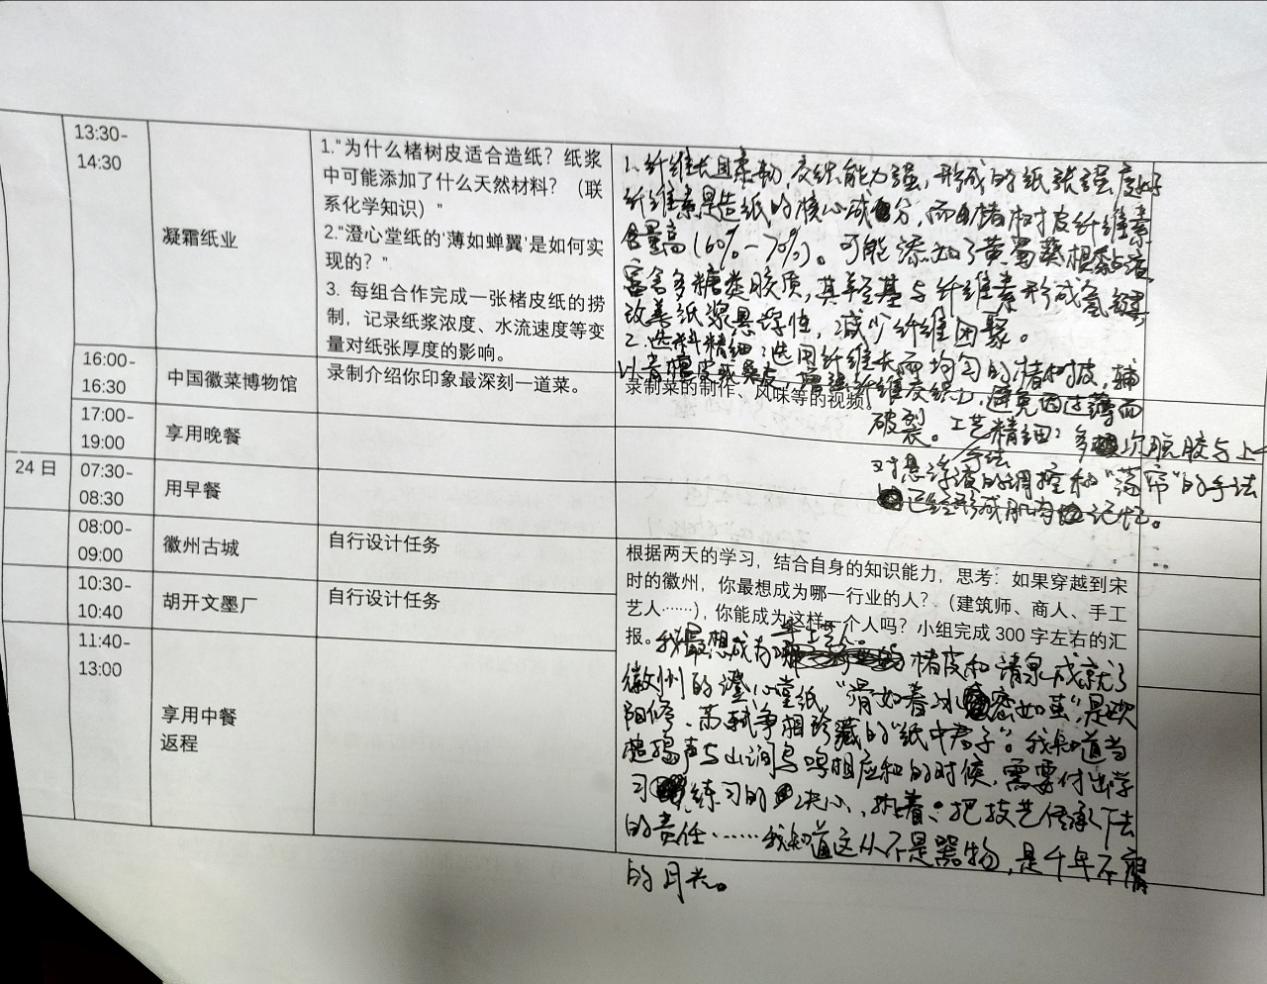 13:30-
14:30
凝霜纸业
1."为什么楮树皮适合造纸？纸浆
中可能添加了什么天然材料？（联
系化学知识）"
2."澄心堂纸的'薄如蝉翼'是如何实
现的？"
3. 每组合作完成一张楮皮纸的捞
制，记录纸浆浓度、水流速度等变
量对纸张厚度的影响。
1.纤维长且柔韧，交织能力强，形成的纸张强度好
纤维素是造纸的核心成分，而楮树皮纤维素
含量高（60%-70%）。可能添加了黄蜀葵根黏液
富含多糖类胶质，其羟基与纤维素形成氢键
改善纸浆悬浮性，减少纤维团聚。
2.选料精细：选用纤维长而均匀的楮树皮，辅
以青檀皮或桑皮，增强纤维交织力，避免因过薄而
破裂。工艺精细：多次脱胶与上
手法
对悬浮液的调控和“荡帘”的手法
已经形成肌肉记忆。
16:00-
16:30
中国徽菜博物馆
录制介绍你印象最深刻一道菜。
录制菜的制作、风味等的视频。
17:00-
19:00
享用晚餐
24 日
07:30-
08:30
用早餐
08:00-
09:00
徽州古城
自行设计任务
根据两天的学习，结合自身的知识能力，思考：如果穿越到宋
时的徽州，你最想成为哪一行业的人？（建筑师、商人、手工
艺人……），你能成为这样一个人吗？小组完成 300 字左右的汇
报。
10:30-
10:40
胡开文墨厂
自行设计任务
11:40-
13:00
享用中餐
返程
手工艺人。
我最想成为 楮皮和清泉成就了
徽州的澄心堂纸“滑如春冰密如茧”，是欧
阳修、苏轼争相珍藏的“纸中君子”。我知道当
声与山涧鸟鸣相应和的时候，需要付出学
习练习的决心、执着：把技艺传承下去
的责任……我知道这从不是器物，是千年不腐
的月光。